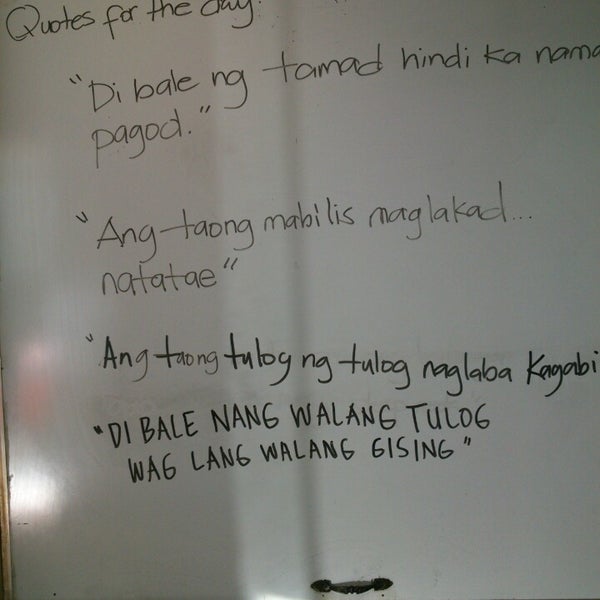 Quotes for the day:
"Di bale ng tamad hindi ka nama
pagod."
"Ang taong mabilis maglakad...
natatae"
"Ang taong tulog ng tulog naglaba kagabi
"DI BALE NANG WALANG TULOG
WAG LANG WALANG GISING"